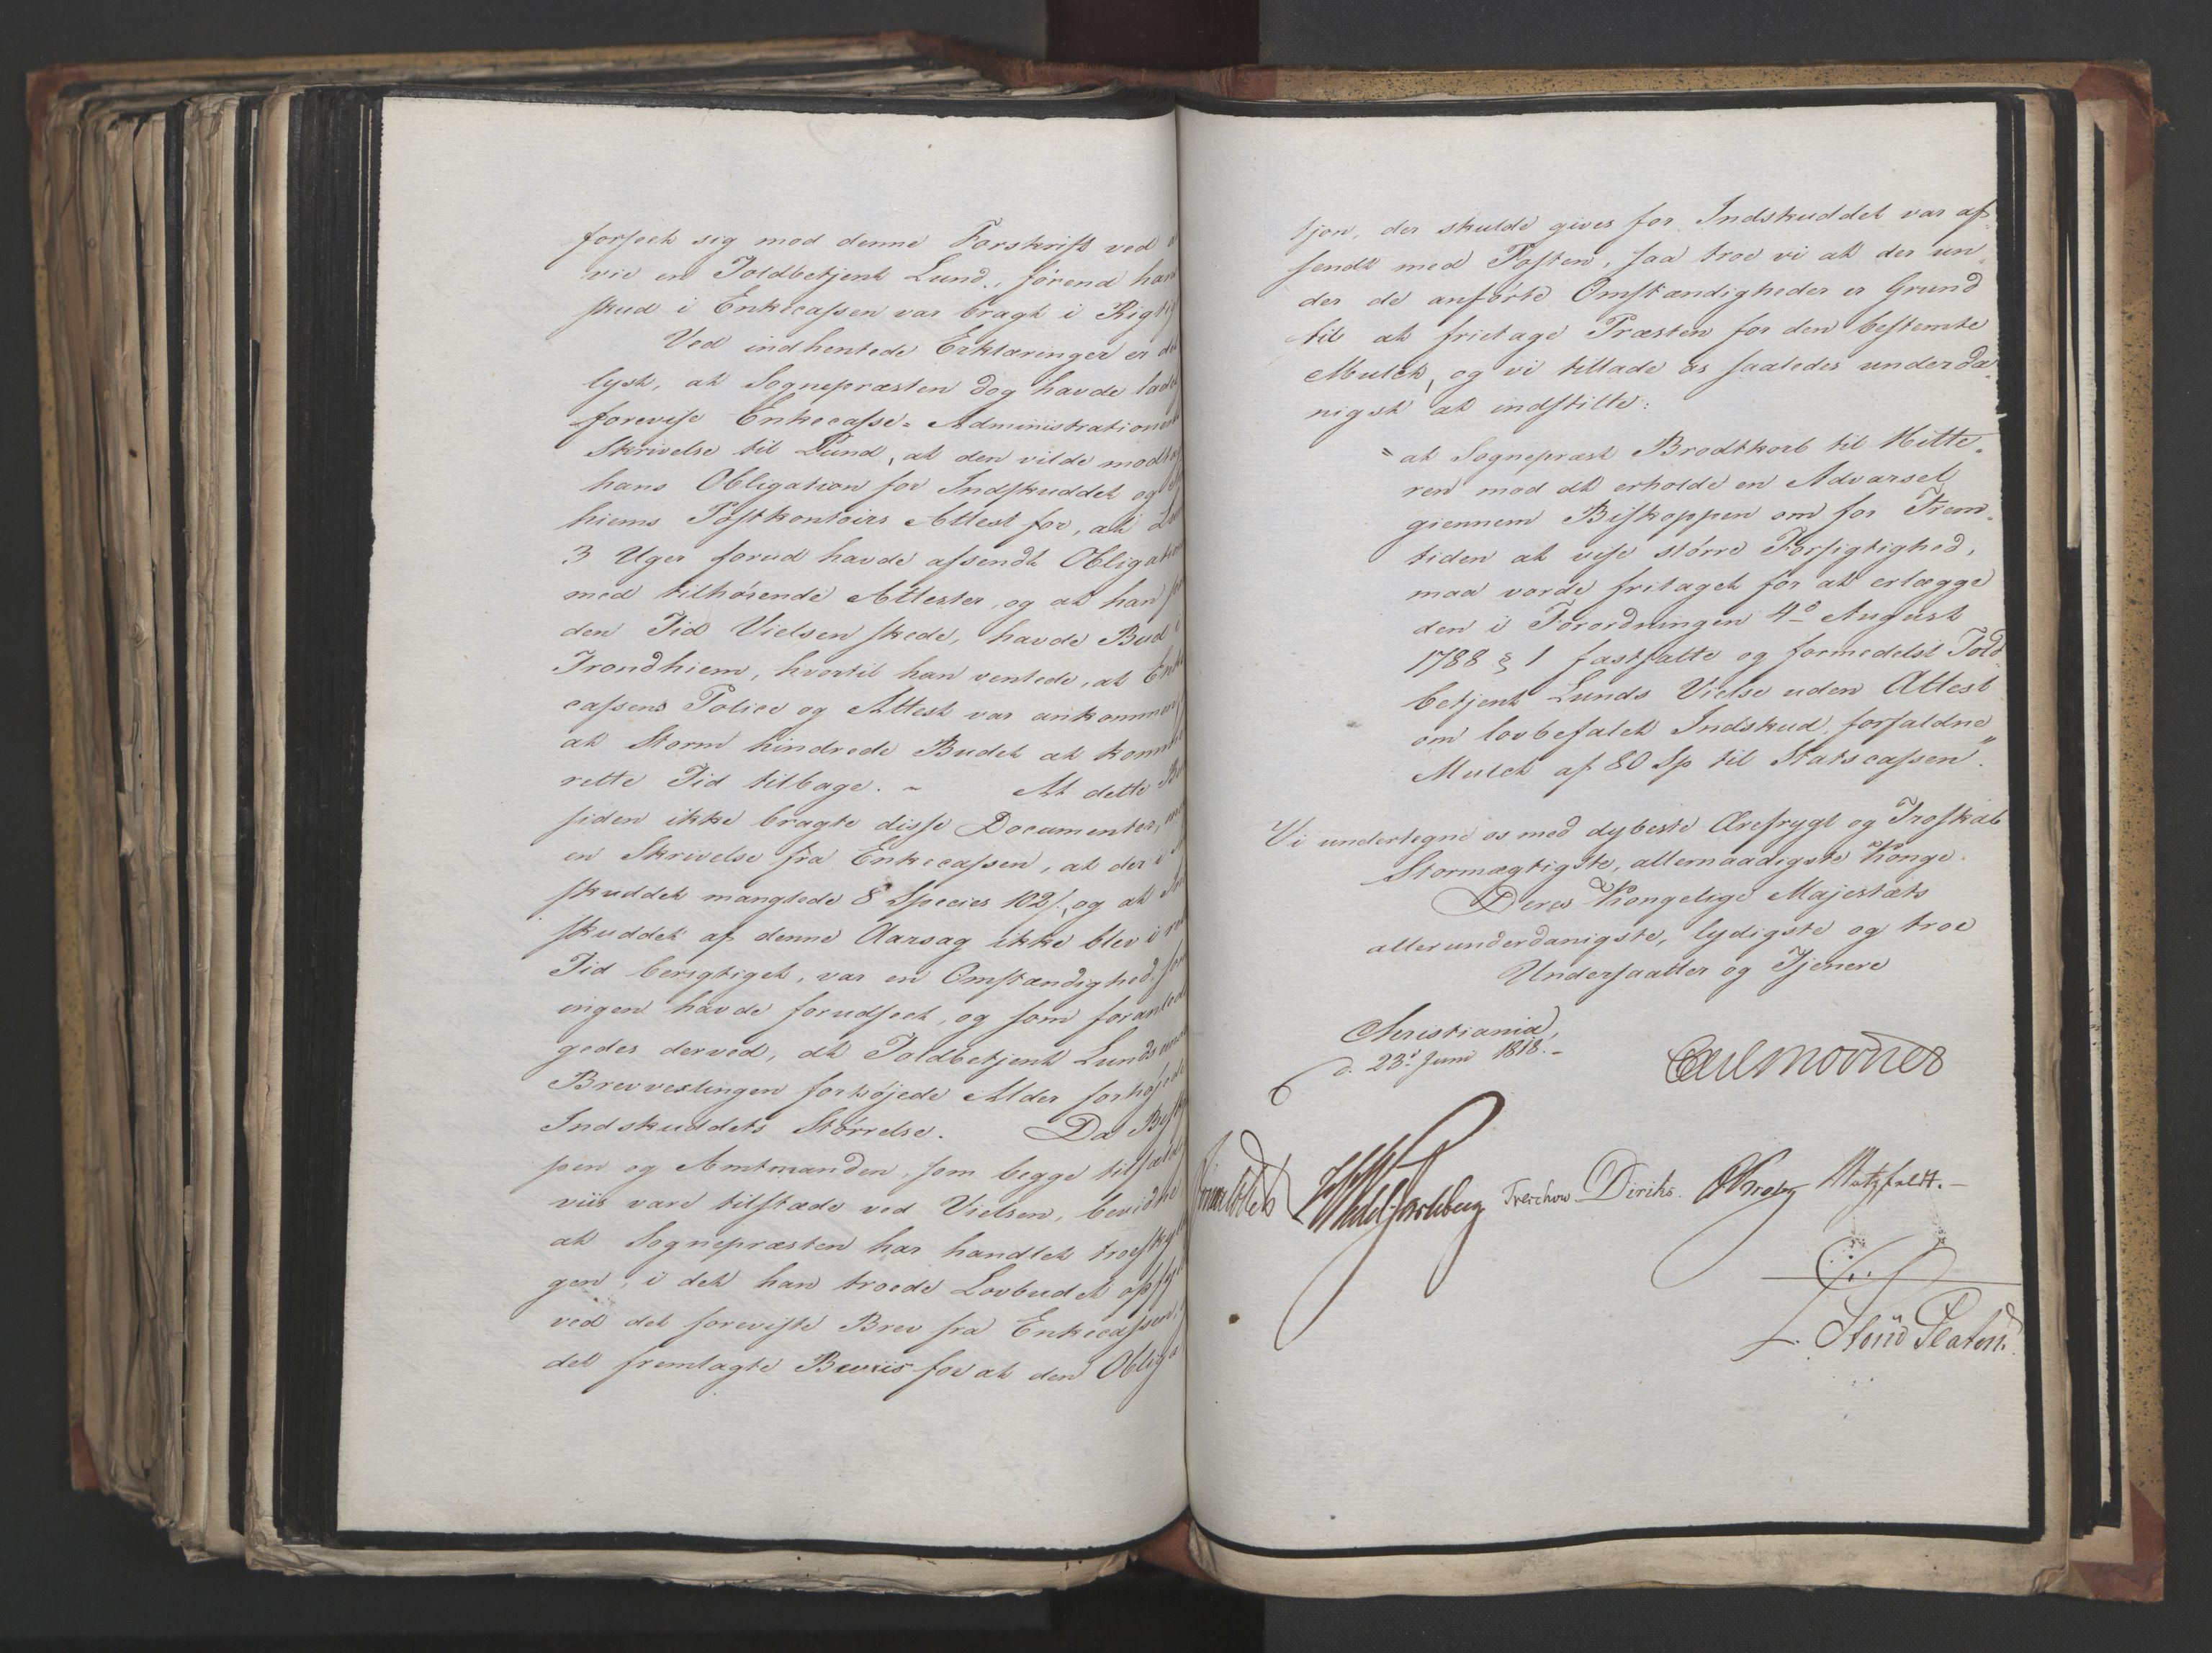 forseet sig mod denne Forskrift ved
vie en Toldbetjent Lund, førend hans
skud i Enkecassen var bragt i Rigtig
Ved indhentede Erklæringer er det
lyst, at Sognepræsten dog havde ladet
forevise Enkecasse-Administrationens
Skrivelse til Lund, at den vilde modta
hans Obligation for Indskuddet og
hiems Postkontoirs Attest for, at
3 Uger forud havde afsendt Obligation
med tilhørende Attester, og at han
den Tid Vielsen skede, havde Bud i
Trondhiem, hvortil han ventede, at Enke
cassens Police og Attest var ankommen
at Storm hindrede Budet at komme
rette Tid tilbage. - At dette Bu
siden ikke bragte disse Documenter, men
en Skrivelse fra Enkecassen, at der i
skuddet manglede 8 Species 102 ß, og at Ind
skuddet af denne Aarsag ikke blev i ret
Tid berigtiget, var en Omstændighed, som
ingen havde forudseet, og som foranled
gedes derved, at Toldbetjent Lunds un
Brevvexlingen forhøjede Alder forhøjede
Indskuddets Størrelse. Da Bisk
pen og Amtmanden, som begge tilfælde
viis vare tilstæde ved Vielsen, bevidne
at Sognepræsten har handlet troskyl
gen, i det han troede Lovbudet opfyl
ved det foreviste Brev fra Enkecassen,
det fremlagte Beviis for at den Obliga
tjon, der skulde gives for Indskuddet var af-
sendt med Posten, saa troe vi at der un-
der de anførte Omstændigheder er Grund
til at frietage Præsten for den bestemte
Mulct, og vi tillade os saaledes underda-
nigst at indstille:
"at Sognepræst Brodtkorb til Hitte-
ren mod at erholde en Advarsel
giennem Biskoppen om for Frem-
tiden at vise større Forsigtighed,
maa vorde fritaget for at erlægge
den i Forordningen 4de August
1788 § 1 fastsatte og formedelst Told-
betjent Lunds Vielse uden Attest
om lovbefalet Indskud, forfaldne
Mulct af 80 Sp til Statscassen".
Vi undertegne os med dybeste Ærefrygt og Troskab
Stormægtigste, allernaadigste Konge.
Deres Kongelige Majestæts
allerunderdanigste, lydigste og troe
Undersaatter og Tjenere
Christiania,
d. 23d Juni 1818.-
Carl Mörner
Sommerfeldt HWedel Jarlsberg Treschow. Diriks. Motzfeldt.-